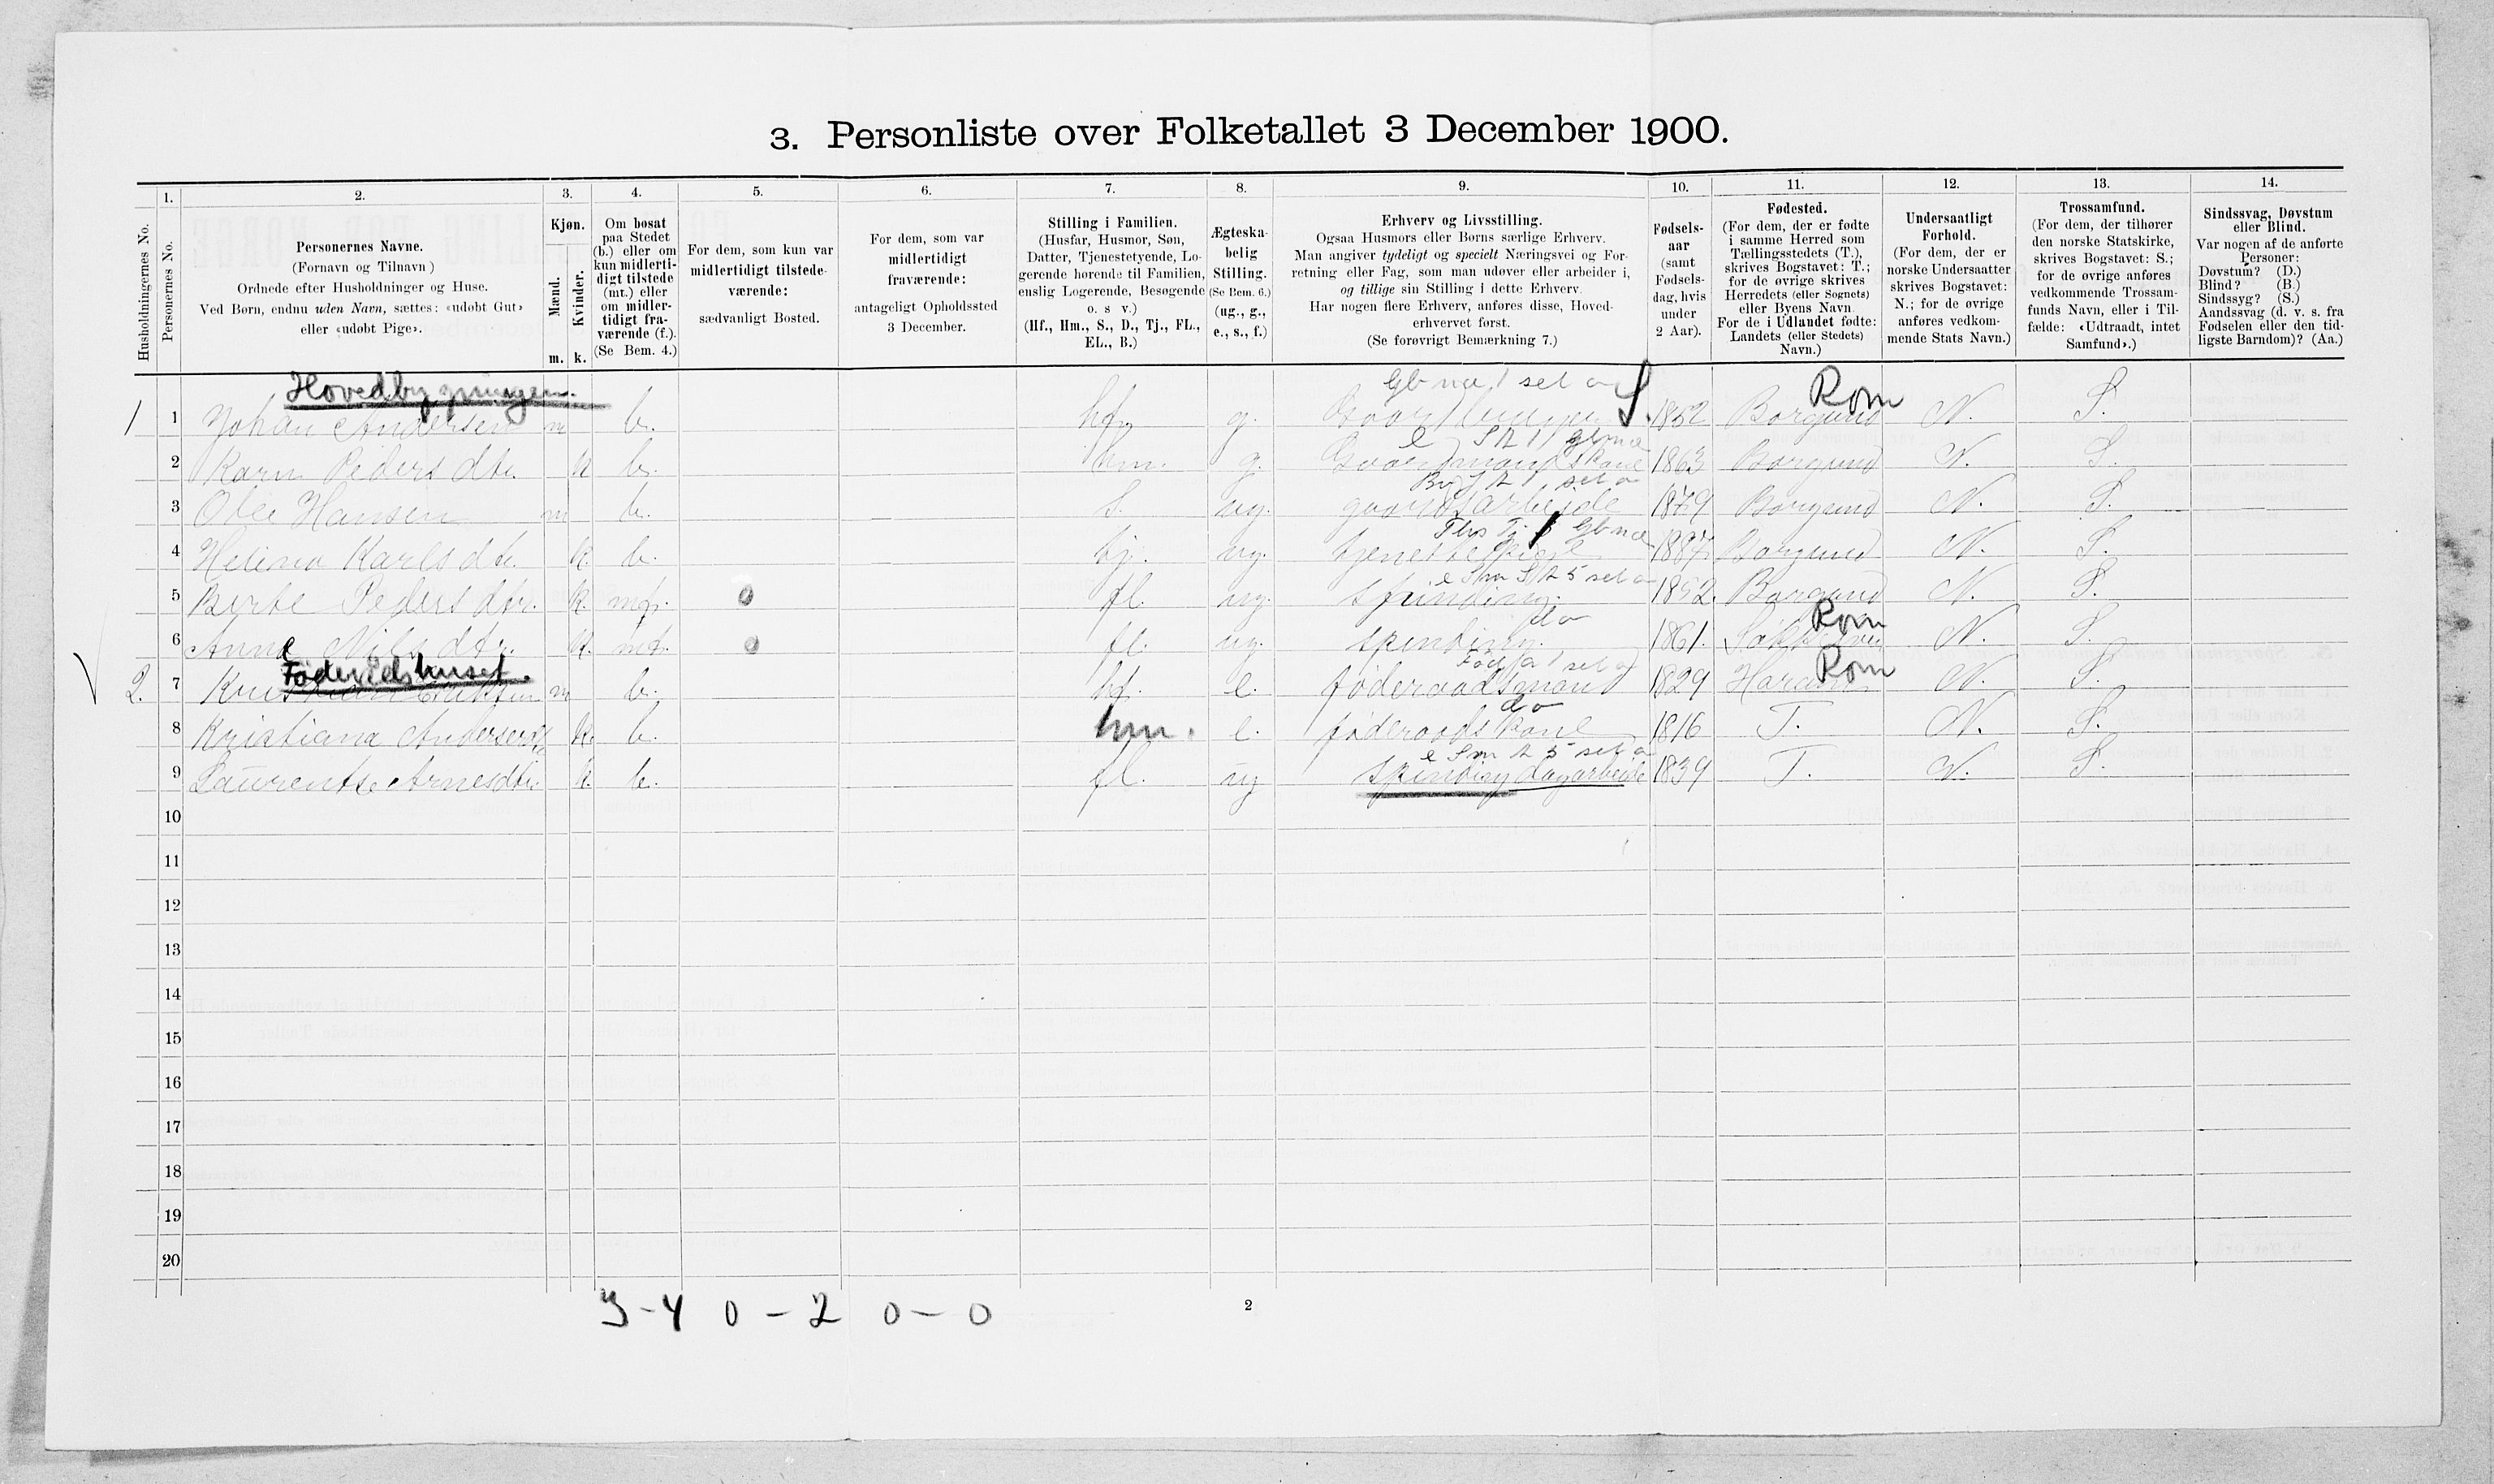 3. Personliste over Folketallet 3 December 1900.
1. 2. 3. 4. 5. 6. 7. 8. 9. 10. 11. 12. 13. 14.
Husholdningernes No.
Personernes No.
Personernes Navne.
(Fornavn og Tilnavn)
Ordnede efter Husholdninger og Huse.
Ved Børn, endnu uden Navn, sættes: «udøbt Gut»
eller «udøbt Pige».
Kjøn.
Mænd.
Kvinder.
m. k.
Om bosat
paa Stedet
(b.) eller om
kun midlerti-
digt tilstede
(mt.) eller
om midler-
tidigt fra-
værende (f.).
(Se Bem. 4.)
For dem, som kun var
midlertidigt tilstede-
værende:
sædvanligt Bosted.
For dem, som var
midlertidigt
fraværende:
antageligt Opholdssted
3 December.
Stilling i Familien.
(Husfar, Husmor, Søn,
Datter, Tjenestetyende, Lo-
gerende hørende til Familien,
enslig Logerende, Besøgende
o. s v.)
(Hf., Hm., S., D., Tj., FL.,
EL., B.)
Ægteska-
belig
Stilling.
(Se Bem. 6.)
(ug., g.,
e., s., f.)
Erhverv og Livsstilling.
Ogsaa Husmors eller Børns særlige Erhverv.
Man angiver tydeligt og specielt Næringsvei og For-
retning eller Fag, som man udøver eller arbeider i,
og tillige sin Stilling i dette Erhverv.
Har nogen flere Erhverv, anføres disse, Hoved-
erhvervet først.
(Se forøvrigt Bemærkning 7.)
Fødsels-
aar
(samt
Fødsels-
dag, hvis
under
2 Aar).
Fødested.
(For dem, der er fødte
i samme Herred som
Tællingsstedets (T.),
skrives Bogstavet: T.;
for de øvrige skrives
Herredets (eller Sognets)
eller Byens Navn.
For de i Udlandet fødte:
Landets (eller Stedets)
Navn.)
Undersaatligt
Forhold.
(For dem, der er
norske Undersaatter
skrives Bogstavet:
N.; for de øvrige
anføres vedkom-
mende Stats Navn.)
Trossamfund.
(For dem, der tilhører
den norske Statskirke,
skrives Bogstavet: S.;
for de øvrige anføres
vedkommende Trossam-
funds Navn, eller i Til-
fælde: «Udtraadt, intet
Samfund».)
Sindssvag, Døvstum
eller Blind.
Var nogen af de anførte
Personer:
Døvstum? (D.)
Blind? (B.)
Sindssyg? (S.)
Aandssvag (d. v. s. fra
Fødselen eller den tid-
ligste Barndom)? (Aa.)
Hovedbygningen. Rom
1 1 Johan Andersen m b. hf. g. 1852 Borgund N. S.
2 Karn Pedersdtr. k b. hm. g. Gaardmandskone 1863 Borgund N. S.
3 Ole Hansen m b. s. ug. gaardsarbeide 1879 Borgund N. S.
Gbna
4 Karlsdtr. k. b. tj. ug. tjenestepige Borgund N. S.
5 Berte Pedersdtr. k. mt. 0 fl. ug. spinding. 1852. Borgund N. S.
do Rom
6 Anna Nilsdtr. k. mt. 0 fl. ug. spinding. 1861. N. S.
Föderådshuset. Rom
2. 7 m b. hf. e. føderaadsmand 1829 Haram N. S.
do
8 Kristiana k. b. hm. e. føderaadskone 1816 T. N. S.
9 Laurentse Arnesdtr. k. b. fl. ug spinding dagarbeide 1839 T. N. S.
10
11
12
13
14
15
16
17
18
19
20
3-4 0-2 0-0
2